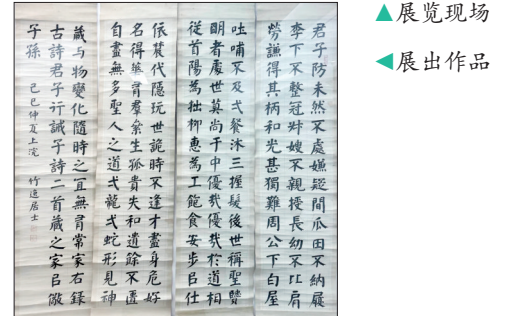 ▲展览现场
◀展出作品
君子防未然不處嫌疑間瓜田不納履
李下不整冠叔嫂不親授長幼不比肩
勞謙得其柄和光甚獨難周公下白屋
吐哺不及弌餐沐三握髮後世稱聖賢
明者處世莫尚于中優哉優哉於道相
從首陽為拙柳惠為工飽食安步㠯仕
依農代隱玩世詭時不逢才盡身危好
名得華有羣絫生孤貴失和遺餘不匱
自盡無多聖人之道弌龍弌蛇形見神
藏与物變化隨時之宜無有常家右錄
古詩君子行誡子詩二首藏之家㠯儆
子孫 己巳仲夏上浣 竹逸居士